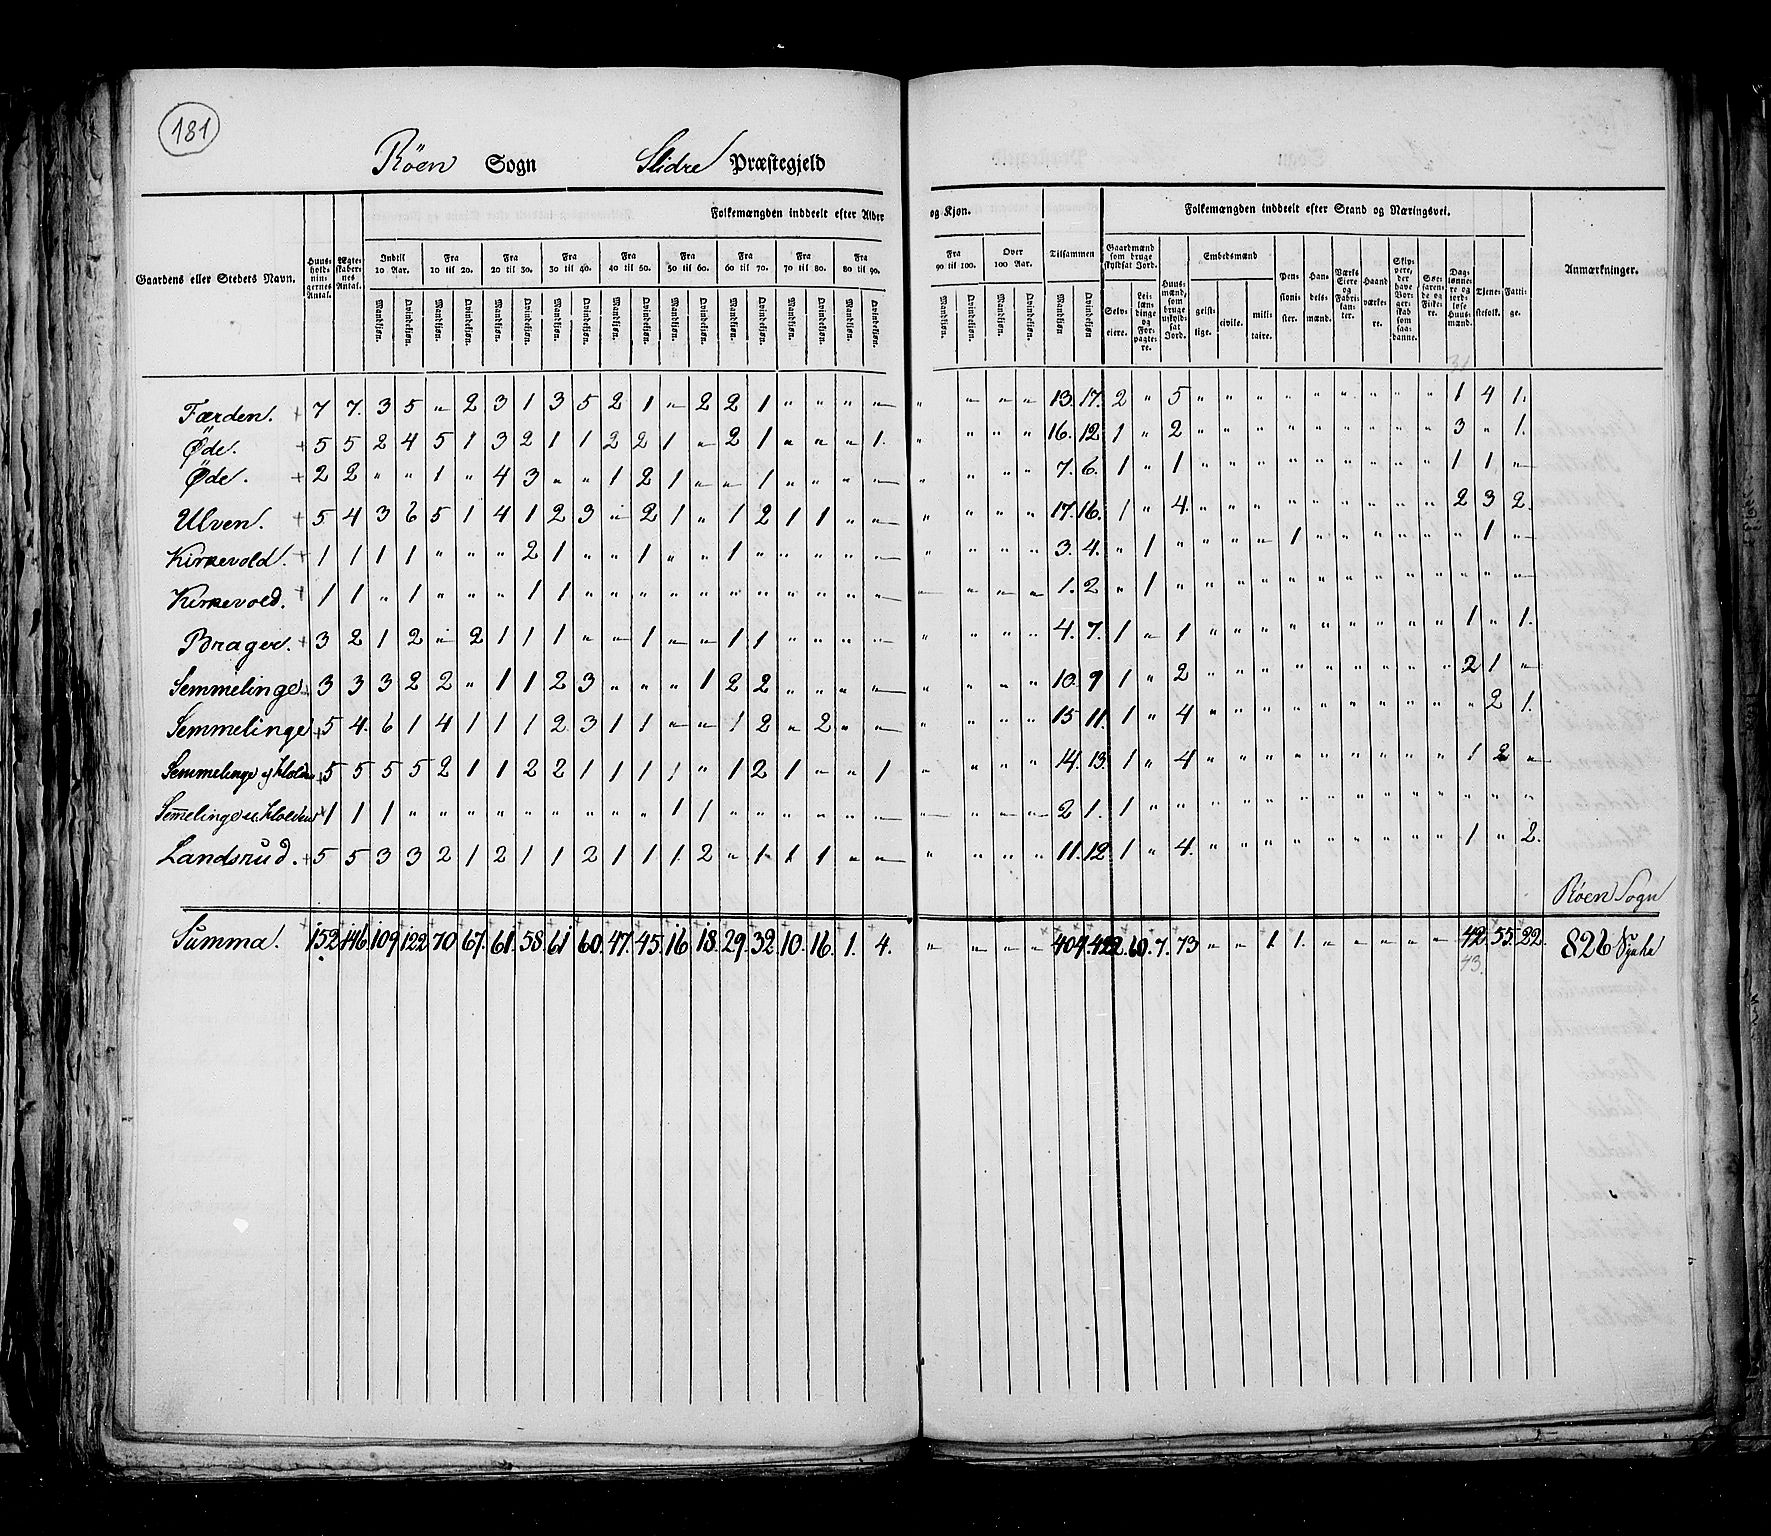 181
Röen Sogn Slidre Præstegjeld
Folkemængden inddeelt efter Alder og Kjøn. Folkemængden inddeelt efter Stand og Næringsvei.
Gaardens eller Stedets Navn. Huus-holdningernes Antal. Ægteskabernes Antal. Indtil 10 Aar. Fra 10 til 20. Fra 20 til 30. Fra 30 til 40. Fra 40 til 50. Fra 50 til 60. Fra 60 til 70. Fra 70 til 80. Fra 80 til 90. Fra 90 til 100. Over 100 Aar. Tilsammen Gaardmænd som bruge skyldsat Jord. Huusmænd, som bruge uskyldsat Jord. Embedsmænd Pensionister. Handelsmænd. Værks Eiere og Fabrikanter. Haandværkere. Skippere, der have Borgerskab som saadanne. Søefarende og Fiskere. Daglønnere og jordløse Huusmænd. Tjenestefolk. Fattige. Anmærkninger.
Mandkjøn. Qvindekjøn. Mandkjøn. Qvindekjøn. Mandkjøn. Qvindekjøn. Mandkjøn. Qvindekjøn. Mandkjøn. Qvindekjøn. Mandkjøn. Qvindekjøn. Mandkjøn. Qvindekjøn. Mandkjøn. Qvindekjøn. Mandkjøn. Qvindekjøn. Mandkjøn. Qvindekjøn. Mandkjøn. Qvindekjøn. Mandkjøn Qvindekjøn. Selveiere. Leilændinge og Forpagtere. geistlige. civile. militaire.
Færden. + 7 7. 3 5 " 2 3 1 3 5 2 1 " 2 2 1 " " " " " " " " 13. 17. 2 " 5 " " " " " " " " " 1 4 1.
Øde. + 5 5 2 4 5 1 3 2 1 1 2 2 1 " 2 1 " " " 1. " " " " 16. 12. 1 " 2 " " " " " " " " " 3 " 1.
Øde. + 2 2 " " 1 " 4 3 " " 1 2 1 " " 1 " " " " " " " " 7. 6. 1 " 1 " " " " " " " " " 1 1 "
Ulven. + 5 4 3 6 5 1 4 1 2 3 " 2 1 " 1 2 1 1 " " " " " " 17. 16. 1 " 4. " " " " " " " " " 2 3 2.
Kirkevold. + 1 1 1 1 " " " 2 1 " " 1 " " 1 " " " " " " " " " 3. 4. " 1 " " " " 1 " " " " " " 1 "
Kirkevold. + 1 1 " 1 " " " 1 1 " " " " " " " " " " " " " " " 1. 2 " 1 " " " " " " " " " " " " "
Brager. + 3 2 1 2 " 2 1 1 1 " " 1 " " 1 1 " " " " " " " " 4. 7. 1 " 1 " " " " " " " " " 1 " 1.
Semmelinge + 3 3 3 2 2 " 1 1 2 3 " " " 1 2 2 " " " " " " " " 10. 9 1 " 2 " " " " " " " " " 2 1 "
Semmelinge + 5 4. 6 1 4 1 1 1 2 3 1 1 " " 1 2 " 2 " " " " " " 15 11. 1 " 4 " " " " " " " " " " 2 1.
Semmelinge + 5 5 5 5 2 1 1 2 2 1 1 1 1 " 1 2 1 " " 1 " " " " 14. 13. 1 " 4 " " " " " " " " " 1 2 "
+ 1 1 1 " " " " " " " " " 1 1 " " " " " " " " " " 2 1. 1 " " " " " " " " " " " " " "
Landsrud. + 5 5 3 3 2 1 2 1 1 2 1 1 1 2 " 1 1 1 " " " " " " 11. 12. 1 " 4. " " " " " " " " " 1 " 2.
Röen Sogn
Summa. 152 146. 109 122 70 67. 61. 58. 61 60. 47. 45. 16. 18. 29. 32. 10. 16. 1. 4. " " " " 404. 7. 73 " " 1. 1. " " " " " 42. 55. 22. 826
43.